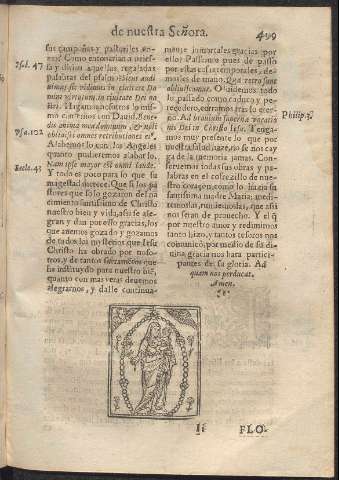 de nuestra Señora. 499
sus campañas, y pastoriles
Como entonarian a
y dirian aquellas regaladas
palabras del psalmo: Sicut audi
uimus sic vidimus in ciuitate Do
mini virtutum in ciuitate Dei no
stri. Hagamos nosotros lo mis
mo diziendo con Dauid. Bene
dic anima mea dominum & noli
obliuisci omnes retributiones eius.
Alabemos lo con los Angeles
quanto pudieremos alabar lo.
Nam ipse maior est omni laude.
Y todo es poco para lo que su
magestad merece. Que si los pa
stores que solo gozaron del na
cimiento santissimo de Christo
nuestro bien y vida, assi se ale
gran y dan por esso gracias, los
que auemos gozado y gozamos
de todos los mysterios que Iesu
Christo ha obrado por noso
tros, y de tantos sacramentos que
ha instituydo para nuestro bie,
quanto con mas veras deuemos
alegrarnos, y dalle continua-
Psal. 47.
Psa. 102
Eccle. 43
mente immortales gracias por
ello? Passemos pues de passo
por estas cosas temporales, de-
mos las de mano. Quæ retro sunt
obliuiscamur. Oluidemos todo
lo passado como caduco y pe-
recedero, corramos tras lo eter
no. Ad brauium supernæ vocatio
nis Dei in Christo Iesu. Tenga-
mos muy presente lo que por
nuestra salud haze, no se nos cay
ga de la memoria jamas. Conse-
ruemos todas sus obras y pala-
bras en el cofrezillo de nuestro
coraçon, como lo hazia su
santissima madre Maria: medite
moslas, rumiemoslas, que assi
nos seran de prouecho. Y el que
por nuestro amor y redimirnos
tanto hizo, y tantos tesoros nos
comunicò, por medio de su di-
uina gracia nos hara partici-
pantes de su gloria. Ad
quam nos perducat.
Amen.
Philip. 3.
Ii FLO-